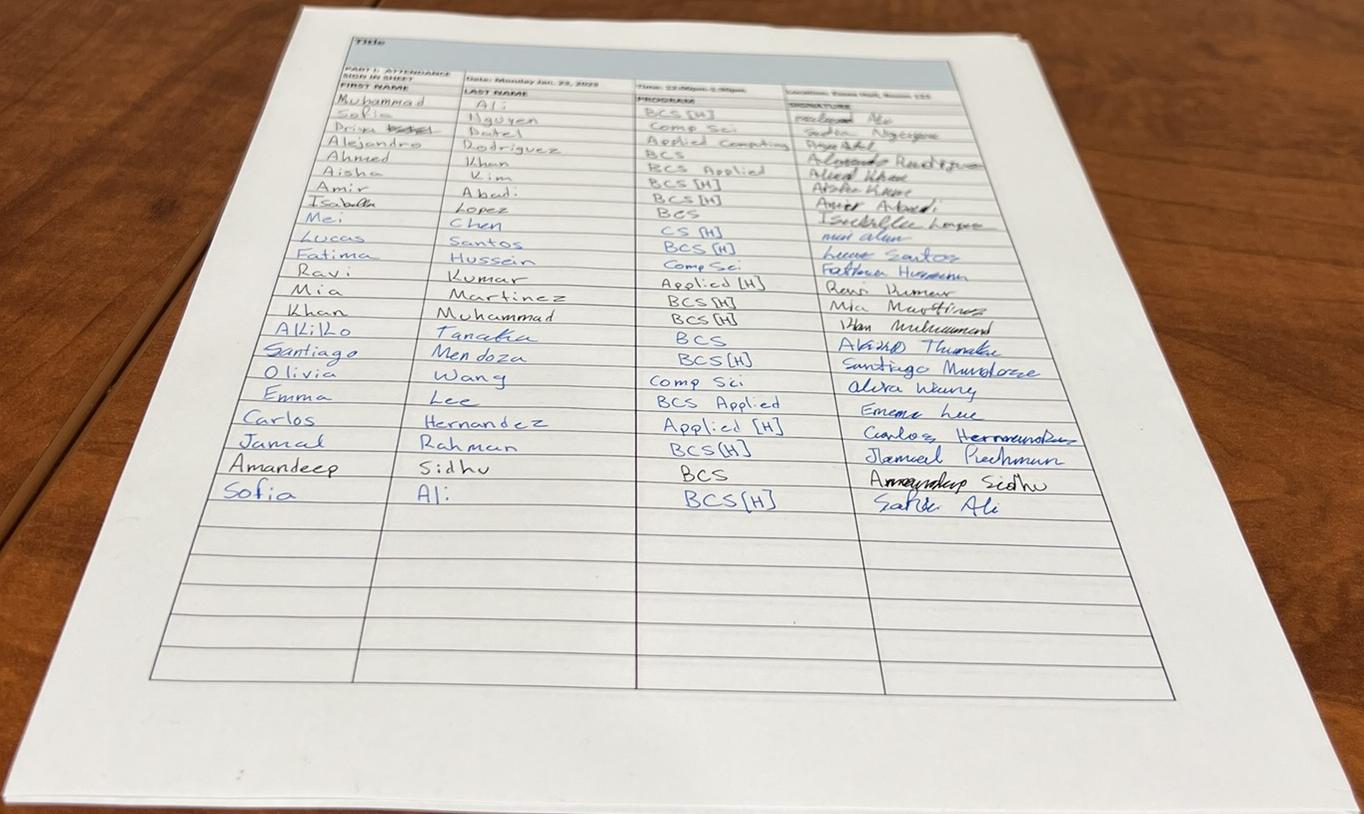 Title
PART I: ATTENDANCE SIGN IN SHEET Date: Monday Jan. 23, 2023 Time: Location: Room
FIRST NAME LAST NAME PROGRAM SIGNATURE
Muhammad Ali BCS [H] Ali
Sofia Nguyen Comp Sci Sofia
Priya Patel Applied Computing
Alejandro Rodriguez BCS Rodriguez
Ahmed Khan BCS Applied Ahmed Khan
Aisha Kim BCS [H] Aisha
Amir Abadi BCS [H] Amir Abadi
Isabella Lopez BCS Isabella Lopez
Mei Chen CS [H]
Lucas Santos BCS [H] Lucas Santos
Fatima Hussein Comp Sci Fatima Hussein
Ravi Kumar Applied [H] Ravi Kumar
Mia Martinez BCS [H] Mia Martinez
Khan Muhammad BCS [H] Khan Muhammad
Akiko Tanaka BCS Akiko
Santiago Mendoza BCS [H] Santiago
Olivia Wang Comp Sci Wang
Emma Lee BCS Applied Emema Lee
Carlos Hernandez Applied [H] Carlos Hernandez
Jamal Rahman BCS [H] Jamal
Amandeep Sidhu BCS Amandeep Sidhu
Sofia Ali BCS [H] Ali